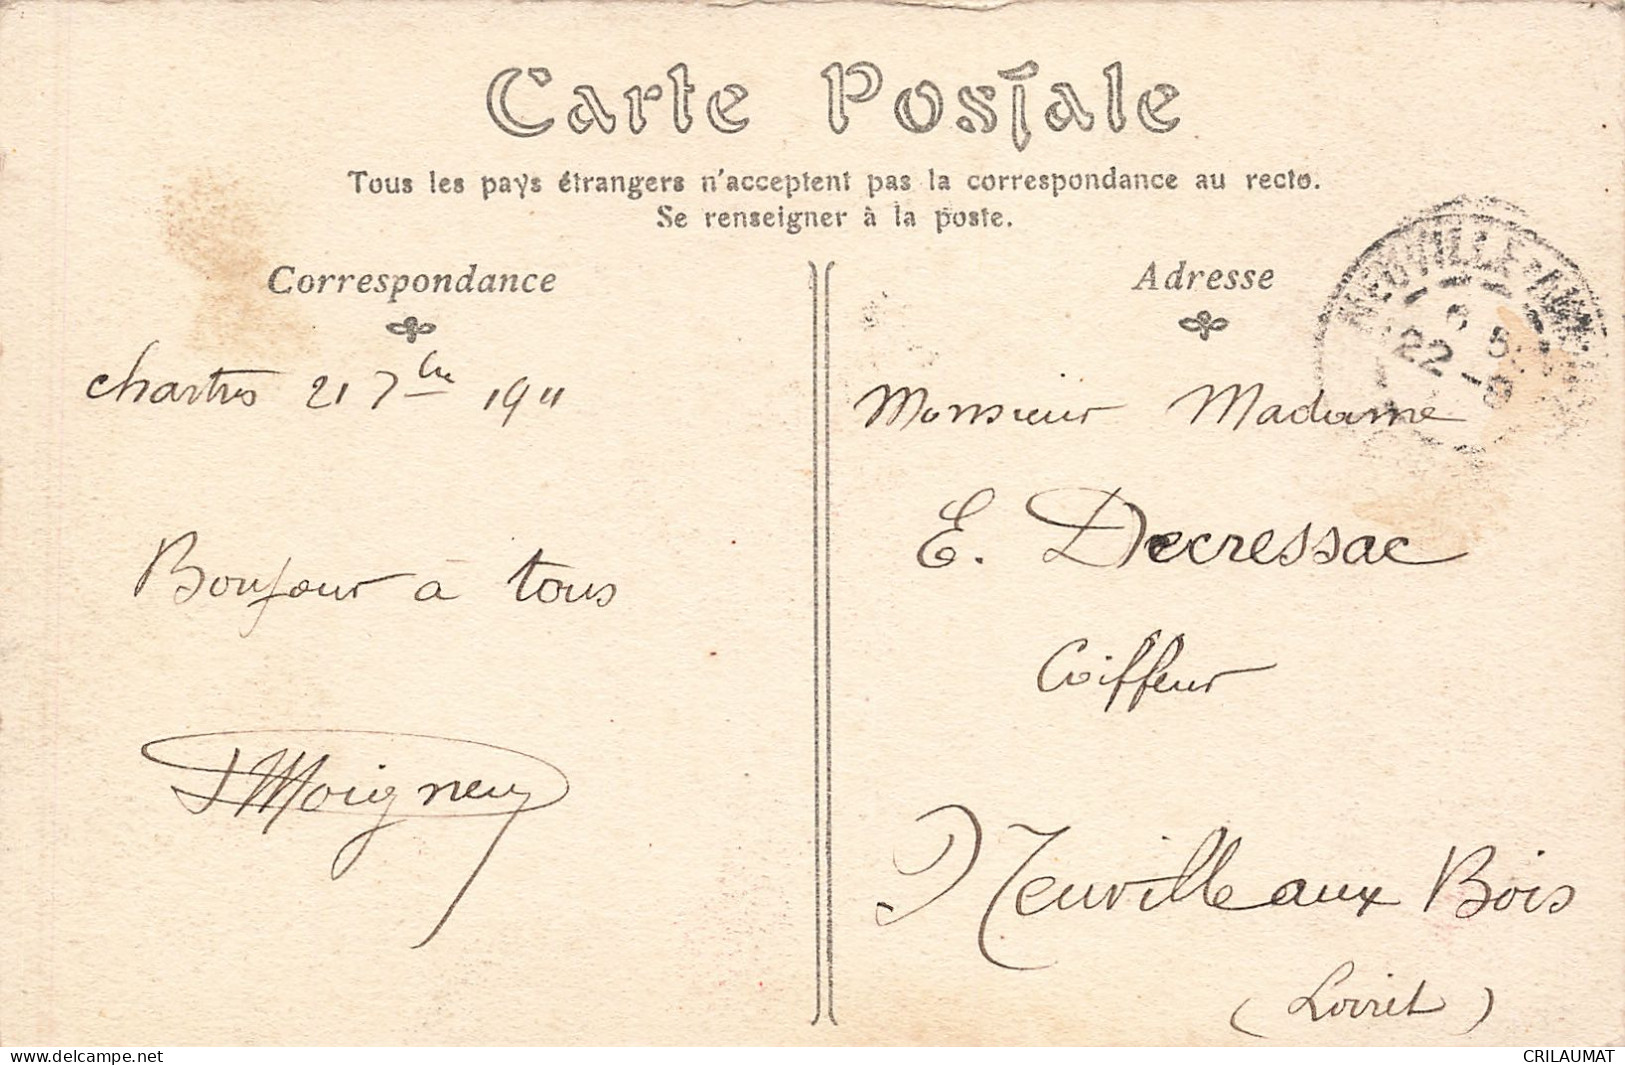 Carte Postale
Tous les pays étrangers n'acceptent pas la correspondance au recto.
Se renseigner à la poste.
Correspondance
Chartres 21 7bre 1911
Bonjour à tous
Moigneu
Adresse
NEUVILLE-AUX
22 -9
Monsieur Madame
E. Decressac
Coiffeur
Neuville aux Bois
(Loiret)
www.delcampe.net
CRILAUMAT